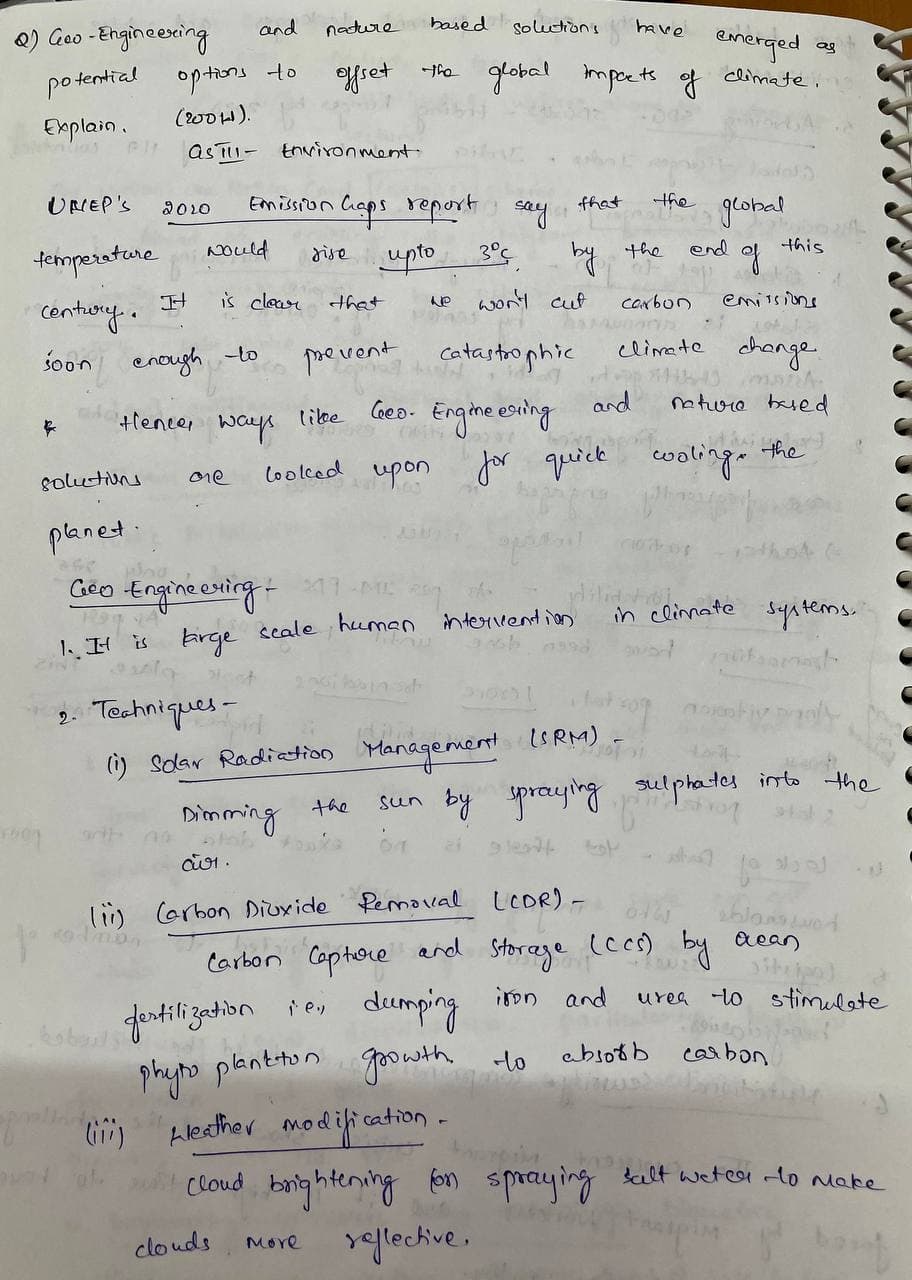 Q) Geo-Engineering and nature based solutions have emerged as
potential options to offset the global impacts of climate.
Explain. (200W).
GS III - Environment.
UNEP's 2020 Emission Gaps report say that the global
temperature would rise upto 3°c by the end of this
century. It is clear that we won't cut carbon emissions
soon enough to prevent catastrophic climate change.
Hence, ways like Geo-Engineering and nature based
solutions are looked upon for quick cooling the
planet.
Geo Engineering -
1. It is large scale human intervention in climate systems.
2. Techniques -
(i) Solar Radiation Management (SRM) -
Dimming the sun by spraying sulphates into the
air.
(ii) Carbon Dioxide Removal (CDR) -
Carbon Capture and Storage (CCS) by ocean
fertilization i.e., dumping iron and urea to stimulate
phyto plankton growth to absorb carbon
(iii) Weather modification -
Cloud brightening (or) spraying salt water to make
clouds more reflective.